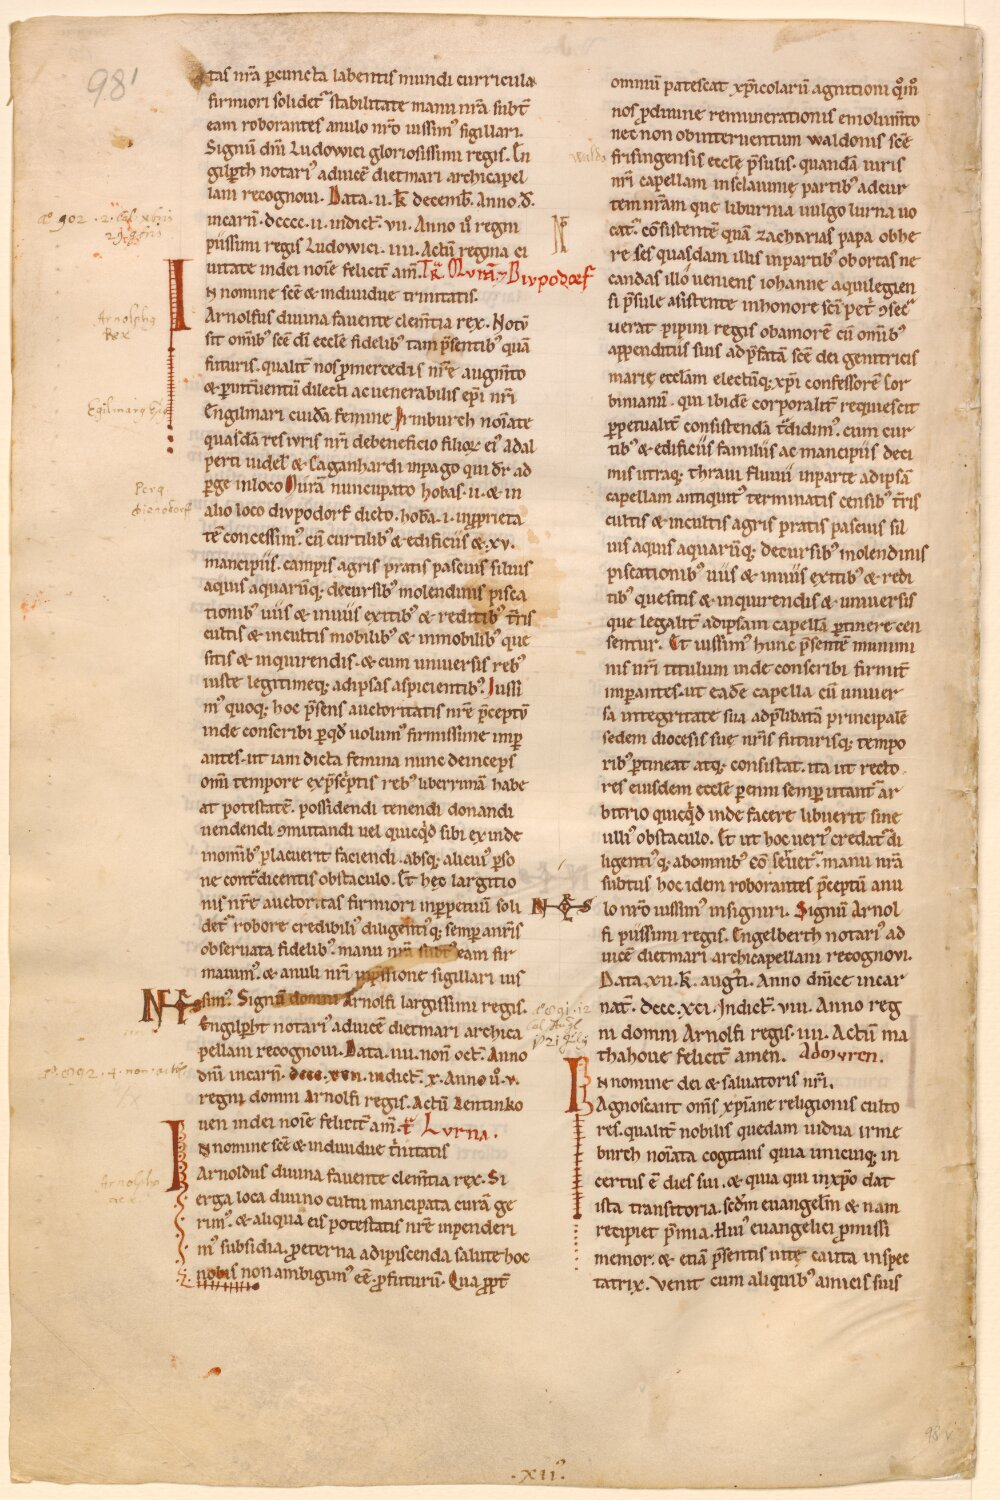 98'
tas nr̄a ꝑcuncta labentis mundi curricula
firmiori solidet᷑ stabilitate manu nr̄a subt᷑
eam roborantes anulo nr̄o iussim᷒ sigillari.
Signū dn̄i Ludowici gloriosissimi regis. En
gilꝑth notari᷒ aduicē dietmari archicapel
lani recognoui. Data. ii. k̄. decemb̄. Anno. d̄.
incarn̄. dcccc. ii. indict̄. vii. Anno ū regni
piissimi regis Ludowici. iiii. Actū regina ci
uitate indei noīe felicit᷑ am̄. Tr̄. Murā ⁊ Divpodorf
In nomine scē & indiuidue trinitatis.
Arnolfus diuina fauente clem̄tia rex. Notū
sit om̄ib᷒ scē dī eccl̄e fidelib᷒ tam p̄sentib᷒ quā
futuris. qualit᷑ nos ꝓmercedis nr̄e augm̄to
& ꝑint̄uentū dilecti ac uenerabilis ep̄i nr̄i
Engilmari cuidā femine Irmburch noīate
quasdā res iuris nr̄i debeneficio filioꝝ ei᷒ adal
perti uidel᷑ & Saganhardi inpago qui dr̄ ad
ꝑge inloco Murā nuncupato hobas. ii. & in
alio loco divpodorf dicto. hobā. i. inꝓprieta
tē concessim᷒. cū curtilib᷒ & edificiis & .xv.
mancipiis. campis agris pratis pascuis siluis
aquis aquarūq; decursib᷒ molendinis pisca
tionib᷒ uiis & inuiis exitib᷒ & reditib᷒ t̄ris
cultis & incultis mobilib᷒ & inmobilib᷒ que
sitis & inquirendis. & cum uniuersis reb᷒
iuste legitimeq; adipsas aspicientib᷒. Iussi
m᷒ quoq; hoc p̄sens auctoritatis nr̄e p̄ceptū
inde conscribi ꝑqd̄ uolum᷒ firmissime inꝑ
antes. ut iam dicta femina nunc deinceps
om̄i tempore exp̄sc̄ptis reb᷒ liberrimā habe
at potestatē. possidendi tenendi donandi
uendendi ꝯmutandi uel quicqd̄ sibi exinde
inom̄ib᷒ placuerit faciendi. absq; alicui᷒ ꝑso
ne cont᷑dicentis obstaculo. Et hec largitio
nis nr̄e auctoritas firmiori inꝑpetuū soli
det᷑ robore credibili᷒ diligenti᷒q; semꝑ anr̄is
obseruata fidelib᷒. manu nr̄a subt᷑ eam fir
mauim᷒. & anuli nr̄i inp̄ssione sigillari ius
sim᷒. Signū domni Arnolfi largissimi regis.
Engilꝑht notari᷒ aduicē dietmari archica
pellani recognoui. Data. iiii. non̄ oct̄. Anno
dn̄i incarn̄. indict̄. x. Anno ū. v.
regni domni Arnolfi regis. Actū Aentinko
uen indei noīe felicit᷑ am̄. Tr̄ Lvrna.
In nomine scē & indiuidue t̄initatis
Arnoldus diuina fauente clem̄tia rex. Si
erga loca diuino cultui mancipata curā ge
rim᷒. & aliqua eis potestatis nr̄e inpenderi
m᷒ subsidia. ꝓeterna adipiscenda salute hoc
nobis non ambigim᷒ eē ꝓfuturū. Qua ꝓpt̄
omniū patescat xp̄icolarū agnitioni qm̄
nos ꝓdiuine remunerationis emolum̄to
nec non obinteruentum waldonis scē
frisingensis eccl̄e p̄sulis. quandā iuris
nr̄i capellam insclauinię partib᷒ adcur
tem nr̄am que liburnia uulgo lurna uo
cat᷑. cōsistentē quā zacharias papa obhe
reses quasdam illis inpartib᷒ obortas ne
candas illo ueniens iohanne aquilegien
si p̄sule asistente inhonore scī pet̄ ꝯsec᷑
uerat pipini regis obamorē cū om̄ib᷒
appenditiis suis adp̄fatā scē dei genitricis
marię eccl̄am electiq; xp̄i confessorē Cor
biniani. qui ibidē corporalit᷑ requiescit
ꝑpetualit᷑ consistendā t᷑didim᷒. cum cur
tib᷒ & edificiis familiis ac mancipiis deci
mis utraq; thraui fluuii inparte adipsā
capellam antiquit᷑ terminatis censib᷒ t̄ris
cultis & incultis agris pratis pascuis sil
uis aquis aquarūq; decursib᷒ molendinis
piscationib᷒ uiis & inuiis exitib᷒ & redi
tib᷒ quesitis & inquirendis & uniuersis
que legalit᷑ adipsam capellā ꝑtinere cen
sentur. Et iussim᷒ hunc p̄sentē munimi
nis nr̄i titulum inde conscribi firmit᷑
inꝑantes. ut eadē capella cū uniuer
sa integritate sua adp̄libatā principalē
sedem diocesis suę nr̄is futurisq; tempo
rib᷒ ꝑtineat atq; consistat. ita ut recto
res eiusdem eccl̄e ꝑenni semꝑ utant᷑ ar
bitrio quicqd̄ inde facere libuerit sine
ulli᷒ obstaculo. Et ut hoc ueri᷒ credat᷑ di
ligenti᷒q; abomnib᷒ cōseruet᷑. manu nr̄a
subtus hoc idem roborantes p̄ceptū anu
lo nr̄o iussim᷒ insigniri. Signū Arnol
fi piissimi regis. Engelberth notari᷒ ad
uicē dietmari archicapellani recognovi.
Data. xii. k̄. auḡti. Anno dn̄ice incar
nat̄. dccc. xci. Indict̄. viii. Anno reg
ni domni Arnolfi regis. iiii. Actū ma
thahoue felicit᷑ amen. Admvren.
In nomine dei & saluatoris nr̄i.
Agnoscant om̄s xp̄iane religionis culto
res. qualit᷑ nobilis quedam uidua irme
burch noīata cogitans quia unicuiq; in
certus ē dies sui. & quia qui inxp̄o dat
ista transitoria. scd̄m euangel̄m & nam
recipiet p̄mia. Hui᷒ euangelici ꝓmissi
memor. & etiā p̄sentis uitę cauta inspec
tatrix. Venit cum aliquib᷒ amicis suis
Arnolphꝯ
Rex
Waldo
.XII᷒.
98v